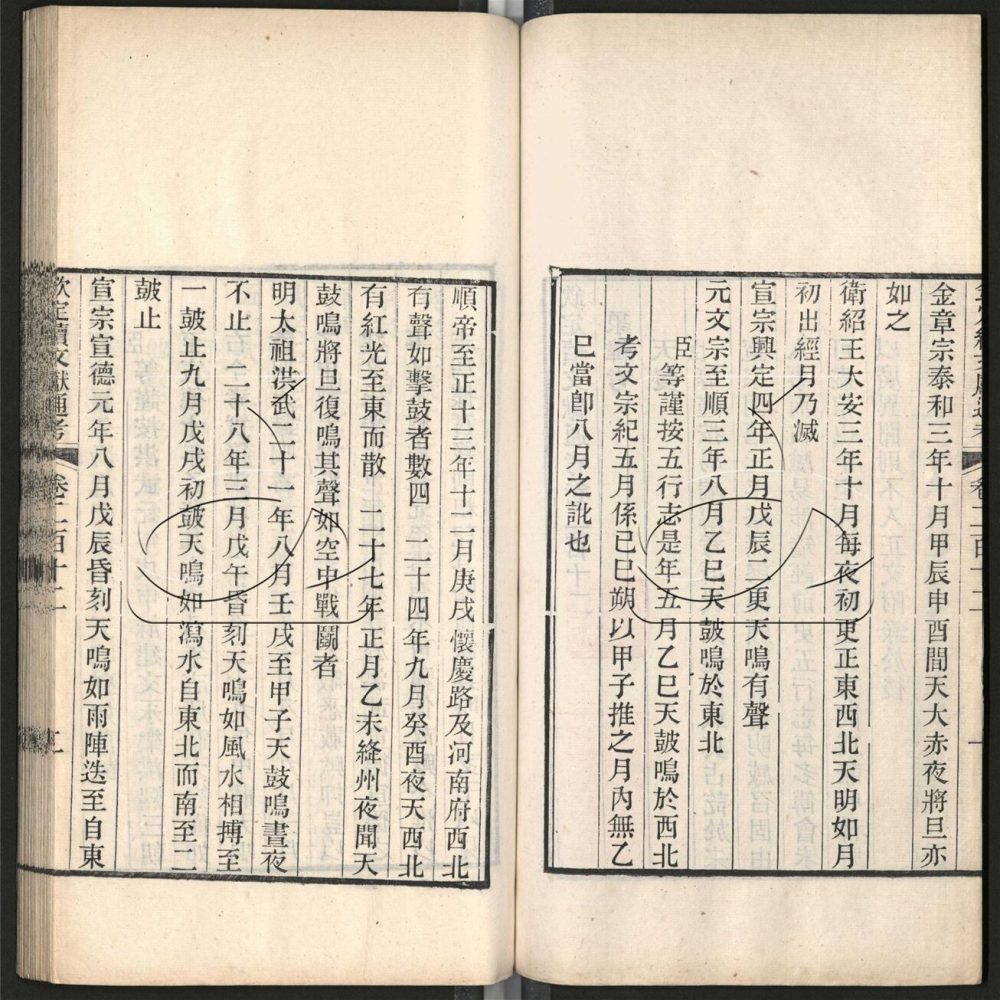 金章宗泰和三年十月甲辰申酉間天大赤夜將旦亦
如之
衛紹王大安三年十月每夜初更正東西北天明如月
初出經月乃滅
宣宗興定四年正月戊辰二更天鳴有聲
元文宗至順三年八月乙巳天鼓鳴於東北
臣等謹按五行志是年五月乙巳天鼓鳴於西北
考文宗紀五月係己巳朔以甲子推之月內無乙
巳當卽八月之訛也
順帝至正十三年十二月庚戌懷慶路及河南府西北
有聲如擊鼓者數四二十四年九月癸酉夜天西北
有紅光至東而散二十七年正月乙未絳州夜聞天
鼓鳴將旦復鳴其聲如空中戰鬭者
明太祖洪武二十一年八月壬戌至甲子天鼓鳴晝夜
不止二十八年三月戊午昏刻天鳴如風水相搏至
一鼓止九月戊戌初鼓天鳴如瀉水自東北而南至二
鼓止
宣宗宣德元年八月戊辰昏刻天鳴如雨陣迭至自東
欽定續文獻通考 卷二百十二